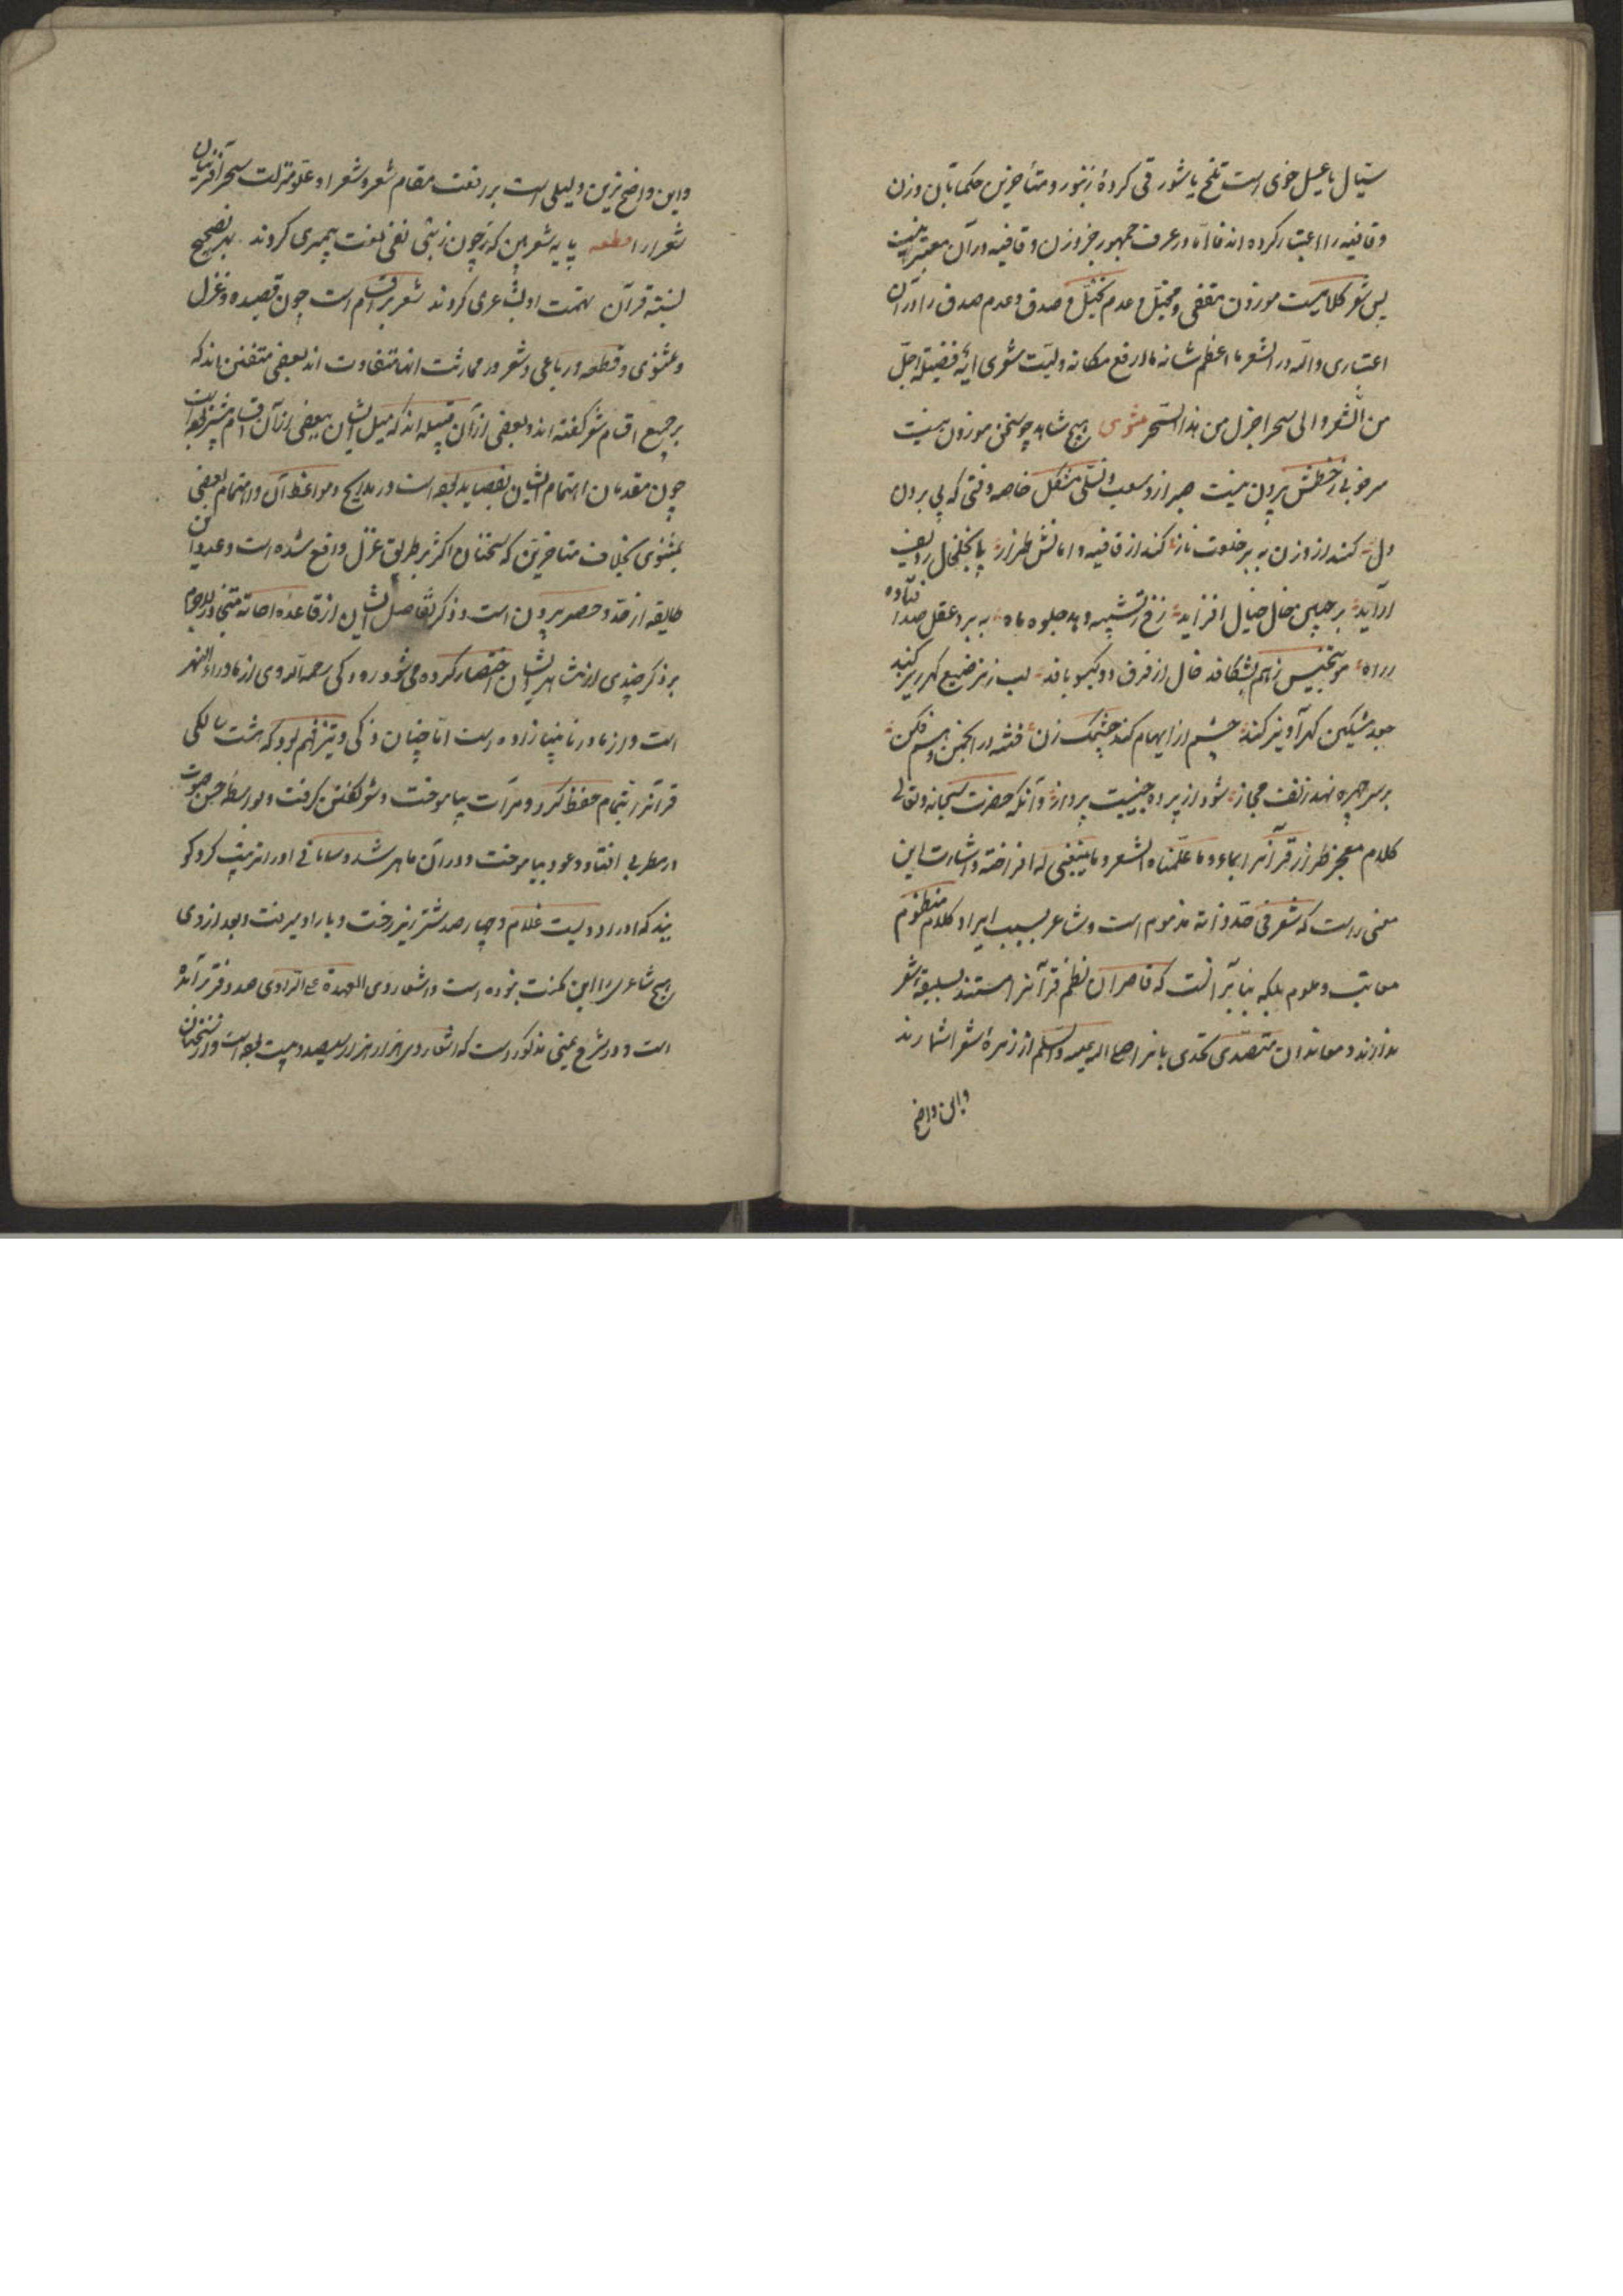 سیال یا عسل خوی است تلخ یا شور قی کردهٔ زنبور و متأخرین حکما بآن وزن
و قافیه را اعتبار کرده اند فاما در عرف جمهور جز وزن و قافیه در آن معتبر نیست
پس شعر کلامیست موزون مقفی و مخیل و عدم تخیل و صدق و عدم صدق را در آن
اعتباری و الله در الشعر ما اعظم شانه ما ارفع مکانه ولیت شعری ایة فضیلة اجل
من الشعر و ای سحر اجزل من هذا السحر مثنوی هیچ شاهد چو سخن موزون نیست
سر خوبی ز خطش بیرون نیست صبر ازو صعب و تسلی مشکل خاصه وقتی که پی بردن
دل کند از وزن به بر خلعت ناز کند از قافیه دامانش طراز پا بخلخال ردیف
آراید بر جبین خال خیال افزاید رخ ز تشبیه دهد جلوه ماه به برد عقل صد افتاده
ز راه مو بتجنیس ز هم بشکافد خال از فرق دو گیسو بافد لب ز ترصیع گهرریز کند
جعد مشکین گهرآویز کند چشم از ایهام کند چشمک زن فتنه در انجمن وهم فکن
بر سر چهره نهد زلف مجاز شود از پرده حقیقت پرداز و آنکه حضرت سبحانه و تعالی
کلام معجز طراز قرآنرا بماء و ما علمناه الشعر و ما ینبغی له افراخته و اشارت این
معنی راست که شعر فی حد ذاته مذموم است و شاعر بسبب ایراد کلام منظوم
معاتب و ملوم بلکه بنابر آنست که قاصران نظم قرآنرا مستند بسلیقه شعر
ندارند و معاندان متصدی تحدی بآنرا صلی الله علیه و سلم از زمرهٔ شعرا شمارند
و این واضح
و این واضح ترین دلیلی است بر رفعت مقام شعر و شعرا و علو منزلت سحر آفرینان
شعر را قطعه پایه شعر بین که چون ز نبی نفی نعت پیمبری کردند بهر تصحیح
نسبت قرآن تهمت او بشاعری کردند شعر بر اقسام است چون قصیده و غزل
و مثنوی و قطعه و رباعی و شعر در ممارست آنها متفاوت اند بعضی متفنن اند که
بر جمیع اقسام شعر گفته اند و بعضی از آن قبیله اند که میل ایشان ببعضی از آن اقسام بیشتر بوده است
چون متقدمان اهتمام ایشان بقصاید بوده است در مدایح و مواعظ آن و اهتمام بعضی
بمثنوی بخلاف متاخرین که سخنان اکثر بر طریق غزل واقع شده است و عدد این
طایفه از حد و حصر بیرون است و ذکر تفاصیل ایشان از قاعده احاطه متجاوز لاجرم
بر ذکر چندی از مشاهیر ایشان اختصار کرده می شود رودکی رحمه الله وی از ماوراء النهر
است و از مادر نابینا زاده است اما چنان ذکی و تیز فهم بود که هشت سالگی
قرآنرا بتمام حفظ کرد و قرآت بیاموخت و شعر گفتن گرفت و بواسطه حسن صوت
در مطربی افتاد و عود بیاموخت و در آن ماهر شد و سامانی او را تربیت کرد گو
یند که او را دویست غلام و چهارصد شتر زیر رخت و بار او میرفت و بعد از وی
هیچ شاعری را این مکنت نبوده است و اشعار وی العهدة علی الراوی صد دفتر برآمده
است و در شرح یمنی مذکور است که اشعار وی هزار هزار و سیصد بیت بوده است و از سخنان